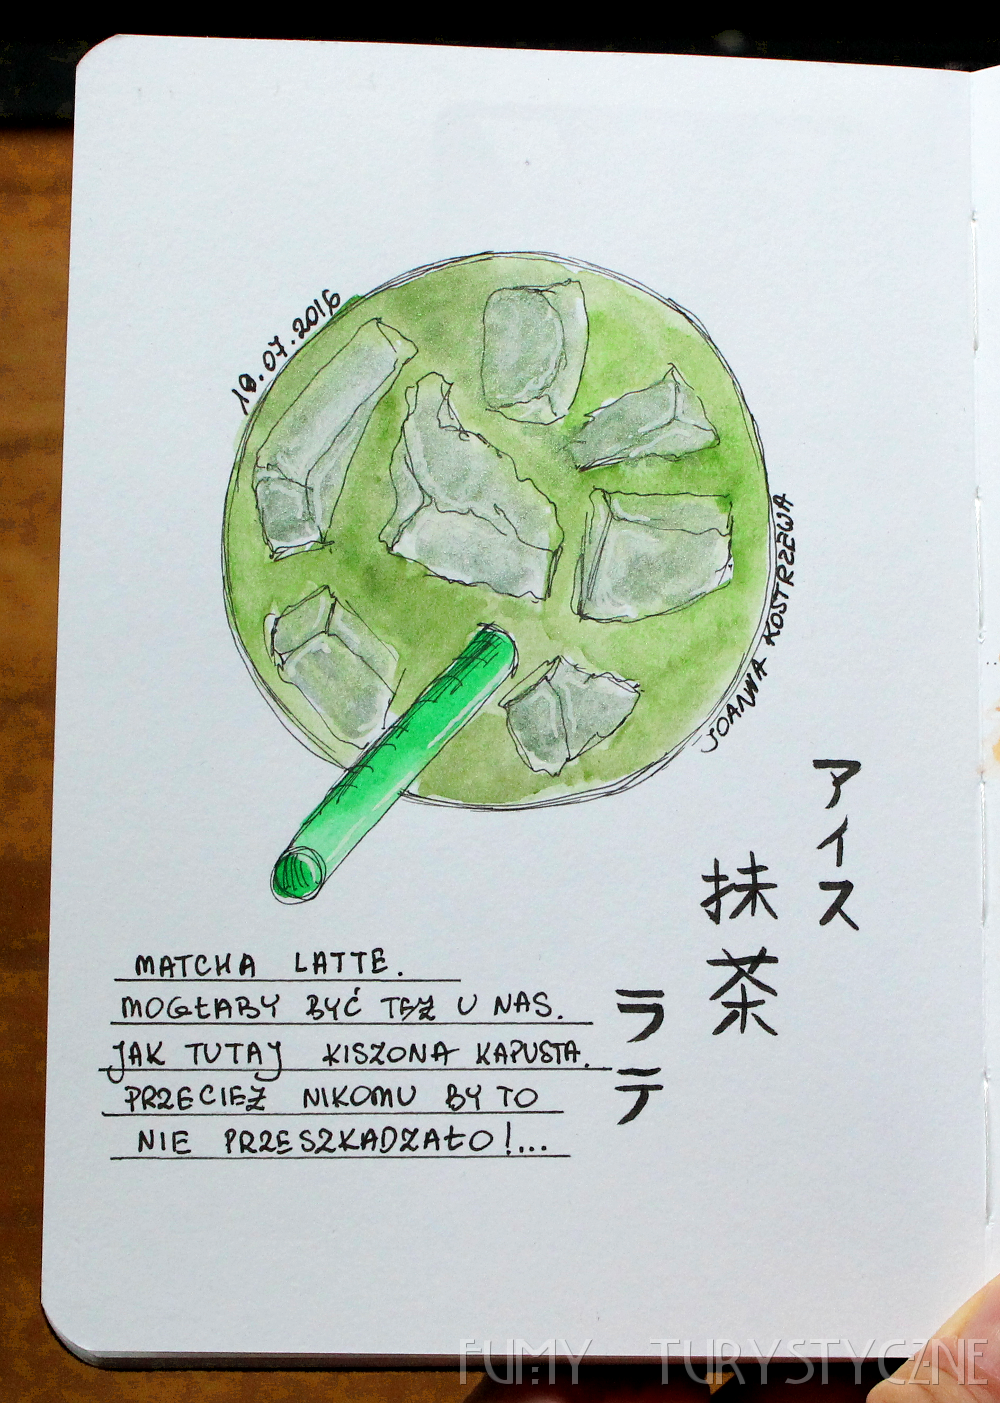 18.07.2016
JOANNA KOSTRZEWA
アイス
抹茶
ラテ
MATCHA LATTE.
MOGŁABY BYĆ TEŻ U NAS.
JAK TUTAJ KISZONA KAPUSTA.
PRZECIEŻ NIKOMU BY TO
NIE PRZESZKADZAŁO!...
FUMY TURYSTYCZNE